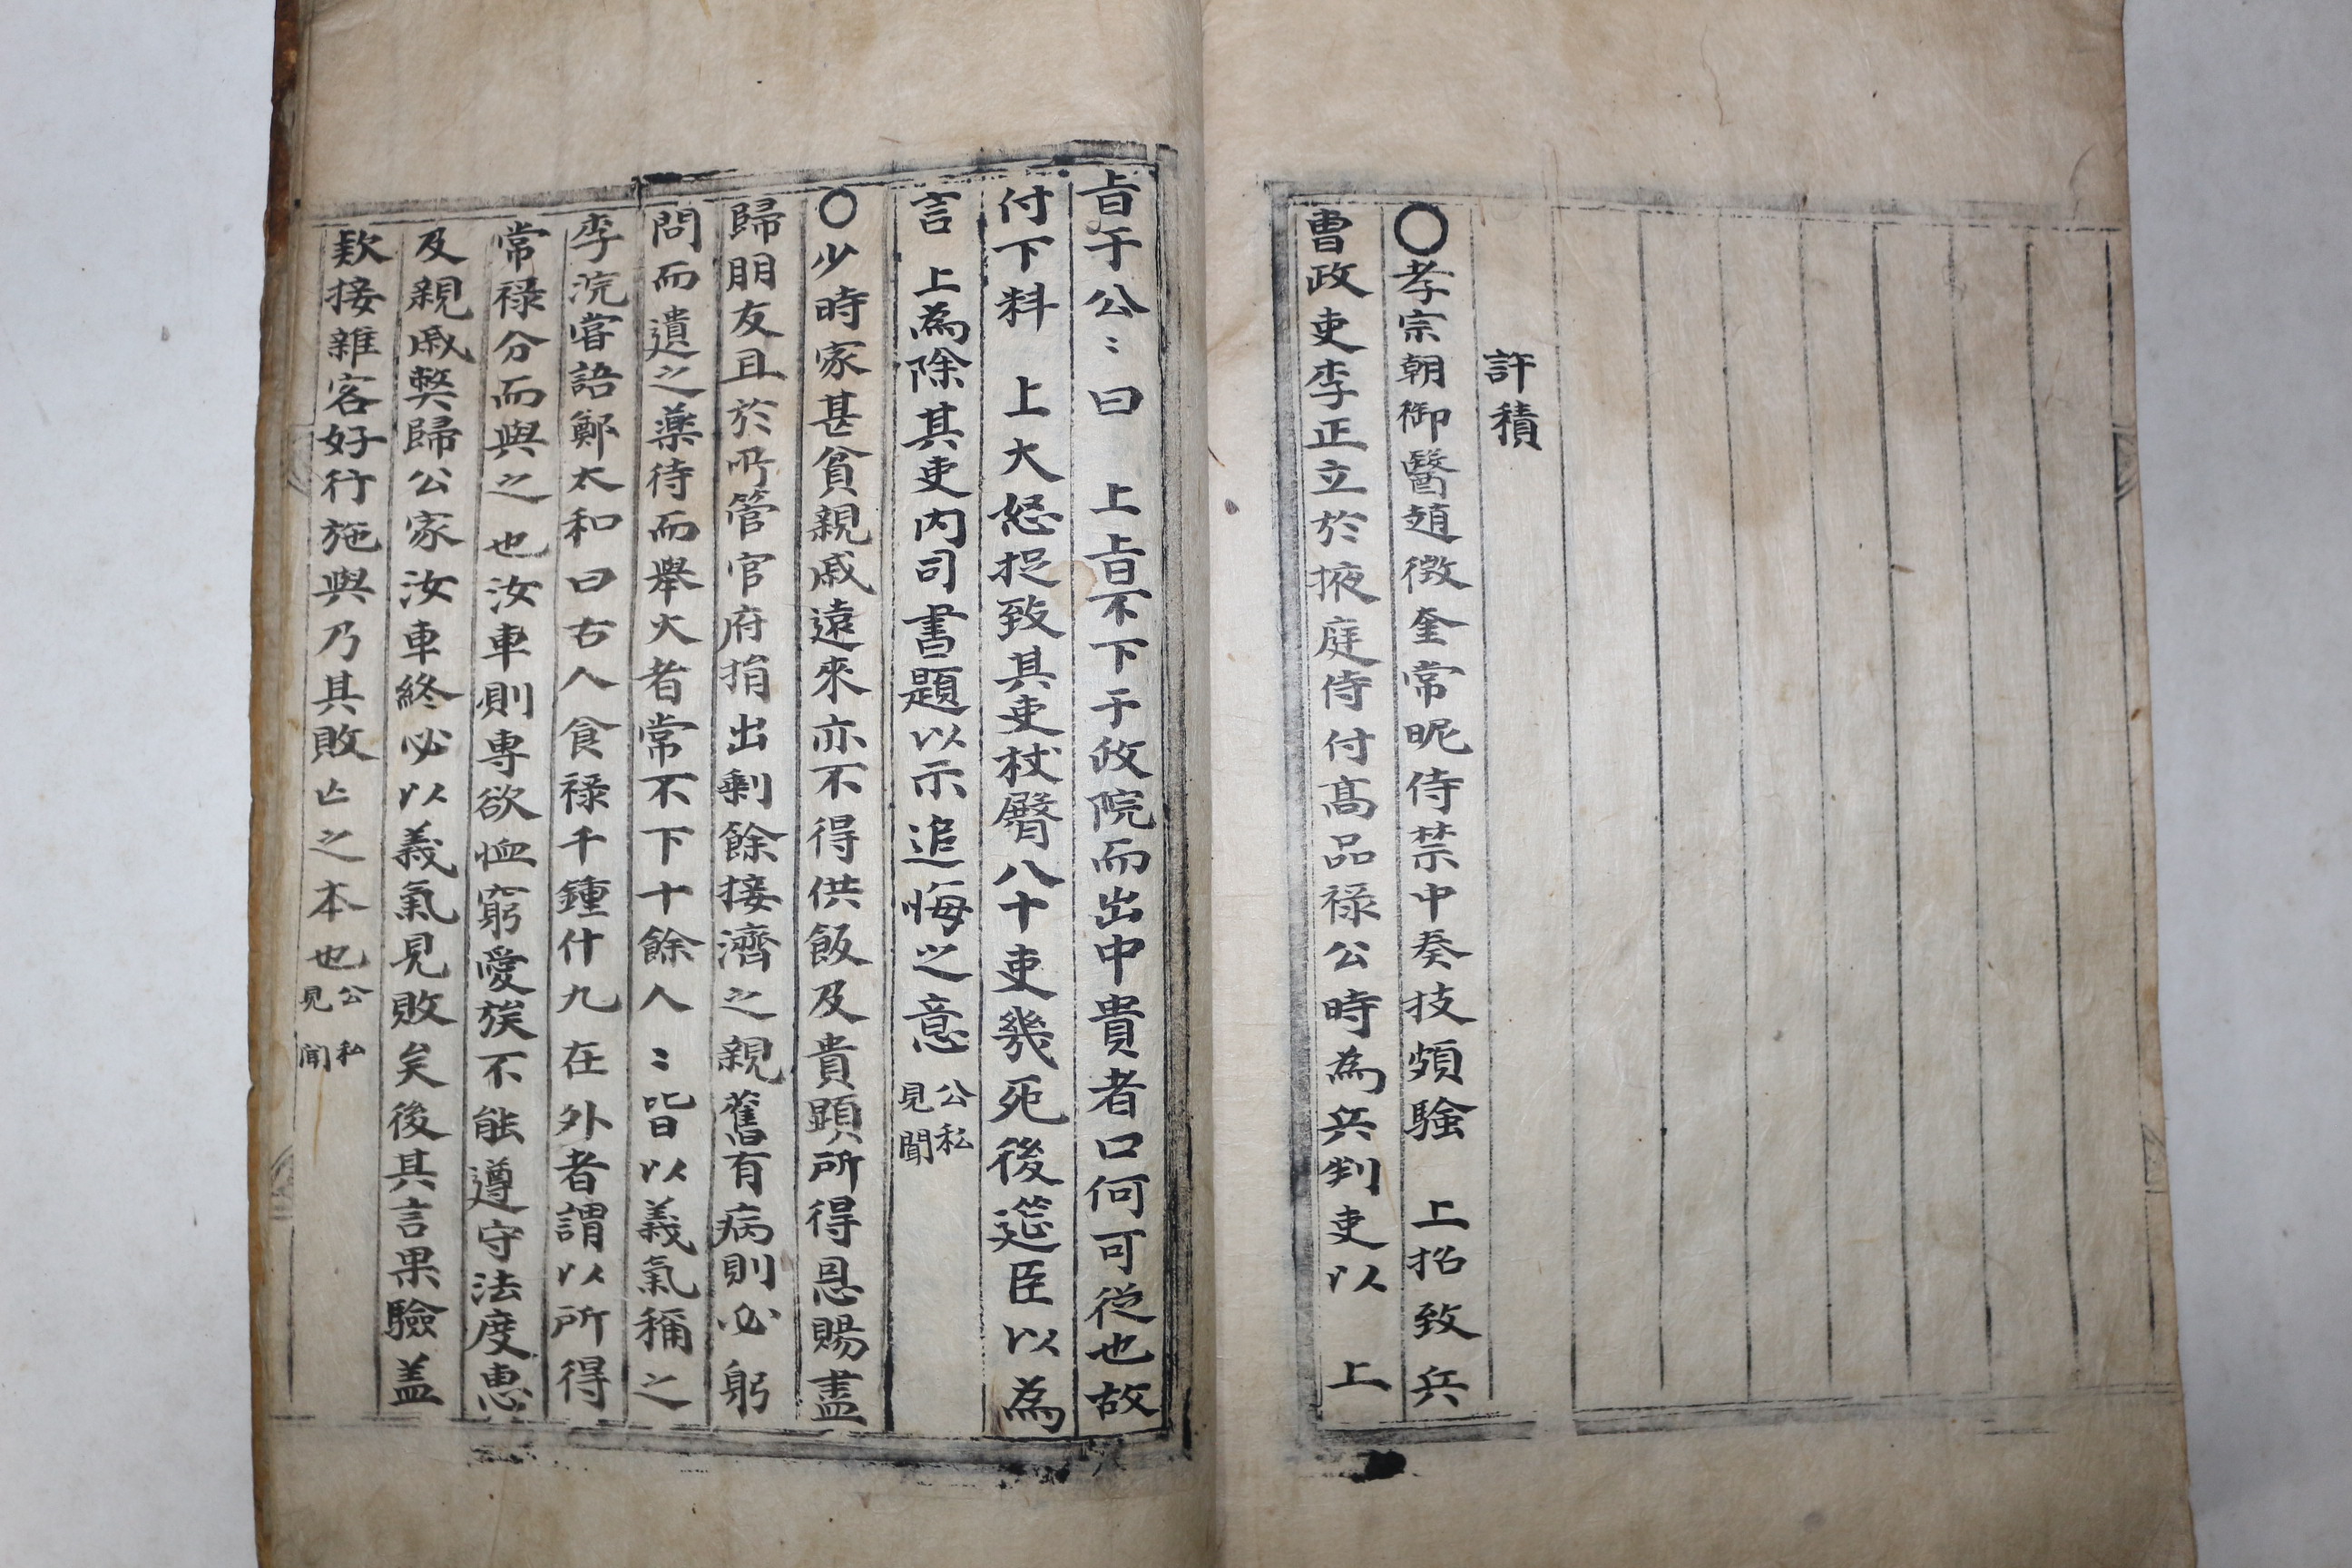 許積
○孝宗朝御醫趙徴奎常昵侍禁中奏技頗騐　上招致兵
曹政吏李正立於掖庭侍付高品祿公時為兵判吏以　上
㫖于公〻曰　上㫖不下于政院而出中貴者口何可從也故
付下料　上大怒捉致其吏杖臀八十吏幾死後筵臣以為
言　上為除其吏內司書題以示追悔之意公私見聞
○少時家甚貧親戚遠來亦不得供飯及貴顯所得恩賜盡
歸朋友且於所管官府捐出剩餘接濟之親舊有病則必躬
問而遺之藥待而舉火者常不下十餘人〻皆以義氣稱之
李浣嘗語鄭太和曰古人食祿千鍾什九在外者謂以所得
常祿分而與之也汝車則專欲恤窮愛族不能遵守法度惠
及親戚獘歸公家汝車終必以義氣見敗矣後其言果驗盖
欵接雜客好行施與乃其敗亡之本也公私見聞